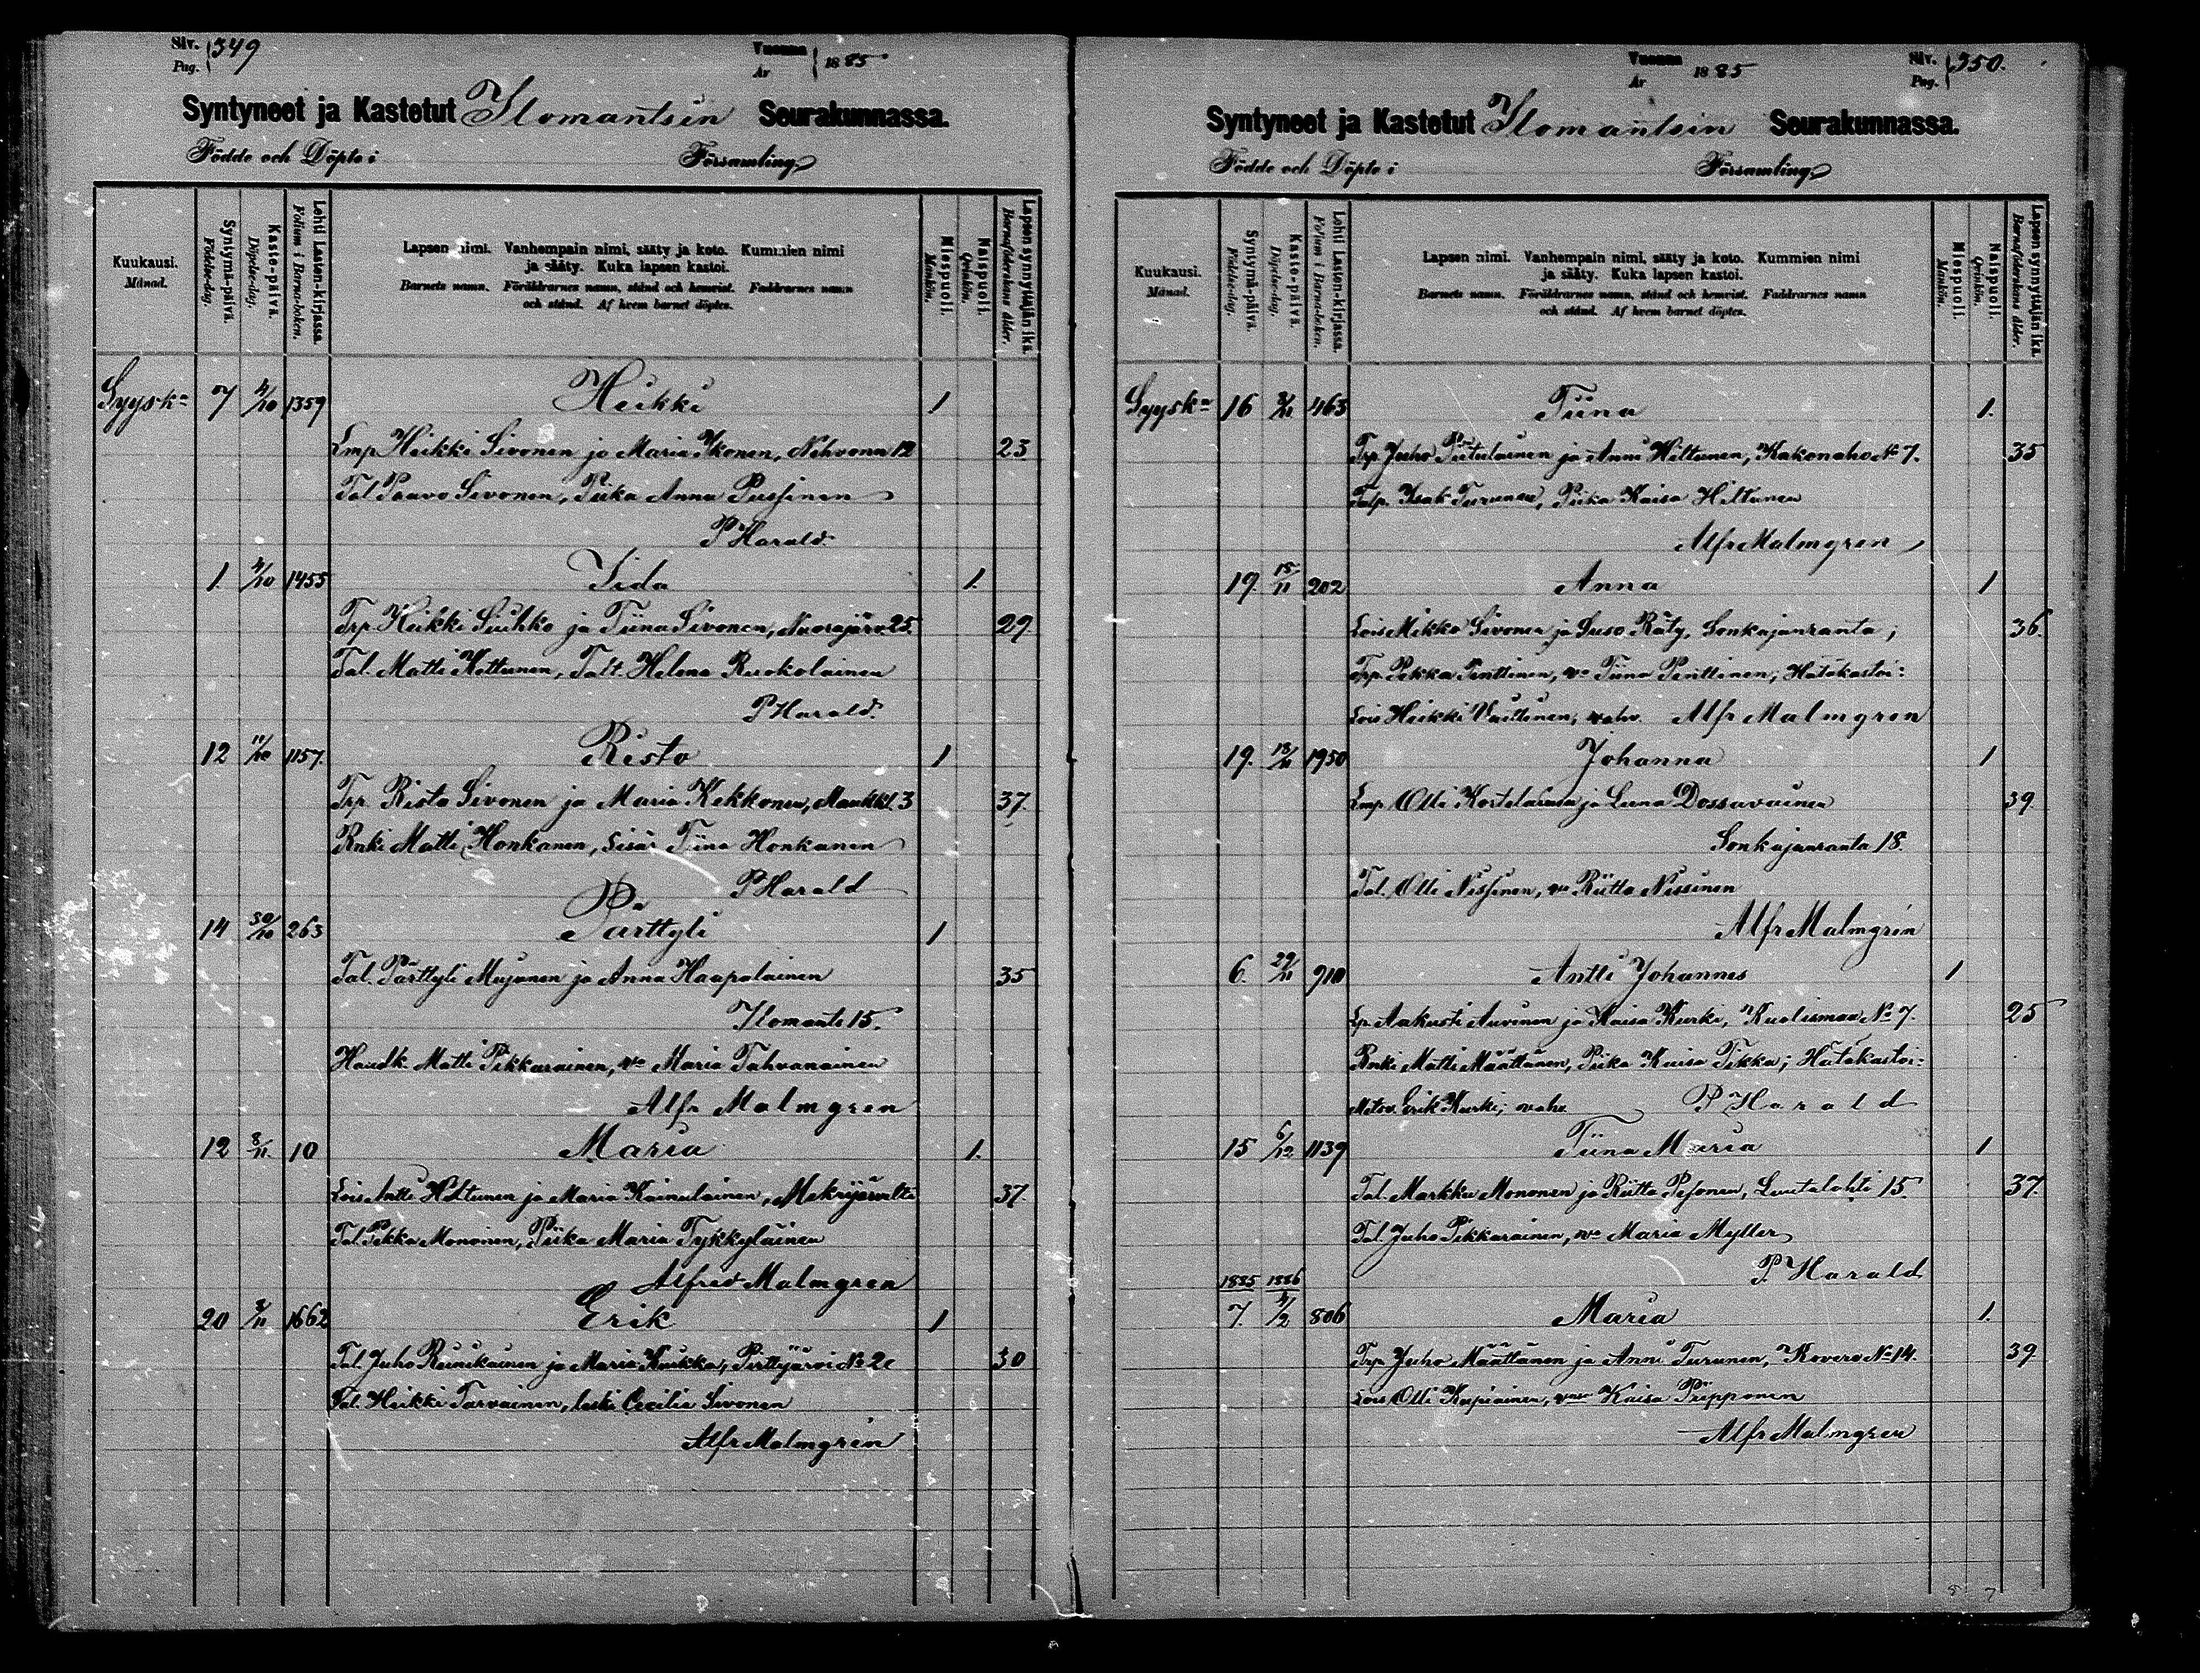 Siv. Pag. 349
Vuonna År 1885
Syntyneet ja Kastetut Ilomantsin Seurakunnassa.
Födde och Döpte i Församling
Kuukausi. Månad.
Syntymä-päivä. Födelse-dag.
Kaste-päivä. Döpelse-dag.
Lehti Lasten-kirjassa. Folium i Barna-boken.
Lapsen nimi. Vanhempain nimi, sääty ja koto. Kummien nimi
ja sääty. Kuka lapsen kastoi.
Barnets namn. Föräldrarnes namn, stånd och hemvist. Faddrarnes namn
och stånd. Af hvem barnet döptes.
Miespuoli. Mankön.
Naispuoli. Qvinkön.
Lapsen synnyttäjän ikä. Barnaföderskans ålder.
Syysk. 7 4/10 1359 Heikki 1
Lmp. Heikki Sivonen ja Maria Ikonen, Nehvonn 12 23
Tal Paavo Sivonen, Piika Anna Pussinen
P Harald.
1. 4/10 1455 Iida 1.
Trp. Heikki Siuhko ja Tiina Sivonen, Nuorajärv 25. 29.
Tal. Matti Kettunen, Talt. Helena Ruokolainen
P Harald.
12 11/10 1157. Risto 1
Trp Risto Sivonen ja Maria Kekkonen, Maukkl. 3 37.
Rnki Matti Honkanen, sisar Tiina Honkanen
P Harald
14 30/10 263 Pärttyli 1
Tal. Pärttyli Mujunen ja Anna Haapalainen 35
Ilomants 15.
Haudk. Matti Pikkarainen, vo Maria Tahvanainen
Alfr Malmgren
12 8/11. 10 Maria 1.
Lois Antti Hiltunen ja Maria Kainulainen, Mekrijärvelta 37.
Tal. Pekka Mononen, Piika Maria Tykkyläinen
Alfred Malmgren
20 8/11 1662 Erik 1
Tal. Juho Reinikainen ja Maria Kuikka, Perttijärvi No 2 30
Tal. Heikki Tarvainen, leski Cecilia Sivonen
Alfr Malmgren
Vuonna År 1885
Siv. Pag. 350.
Syntyneet ja Kastetut Ilomantsin Seurakunnassa.
Födde och Döpte i Församling
Kuukausi. Månad.
Syntymä-päivä. Födelse-dag.
Kaste-päivä. Döpelse-dag.
Lehti Lasten-kirjassa. Folium i Barna-boken.
Lapsen nimi. Vanhempain nimi, sääty ja koto. Kummien nimi
ja sääty. Kuka lapsen kastoi.
Barnets namn. Föräldrarnes namn, stånd och hemvist. Faddrarnes namn
och stånd. Af hvem barnet döptes.
Miespuoli. Mankön.
Naispuoli. Qvinkön.
Lapsen synnyttäjän ikä. Barnaföderskans ålder.
Syysk. 16 463 Tiina 1.
Trp Juho Piitulainen ja Anni Hiltunen, Kakonaho No 7. 35
Talp. Isak Turunen, Piika Kaisa Hiltunen
Alfr Malmgren
19. 15/11 202 Anna 1
Lois Mikko Sivonen ja Suso Räty, Sonkajanranta; 36.
Trp. Pekka Penttinen, vo Tiina Penttinen; Hätäkastoi:
Lois Heikki Vaittinen, vahv. Alfr Malmgren
19. 1950 Johanna 1
Lmp. Olli Kortelainen ja Leena Dossavainen 39.
Sonkajanranta 18.
Tal. Olli Nissinen, vo Riitta Nissinen
Alfr Malmgren
6. 29/11 910 Antti Johannes 1
Lp. Aukusti Auvinen ja Kaisa Kurki, Kuolismaa No 7. 25
Rnki Matti Määttänen, Piika Kaisa Tikka; Hätäkastoi:
Metsv. Erik Kurki; vahv. P Harald
15 6/12 1139 Tiina Maria 1
Tal. Markku Mononen ja Riitta Pesonen, Luutalahti 15. 37.
Tal. Juho Pikkarainen, vo Maria Myller
P. Harald
1885 1886
7. 4/2 806 Maria 1.
Trp Juho Määttänen ja Anni Turunen, Kovero No 14. 39.
Lois Olli Karpiainen, Kaisa Piipponen
Alfr Malmgren
5 7